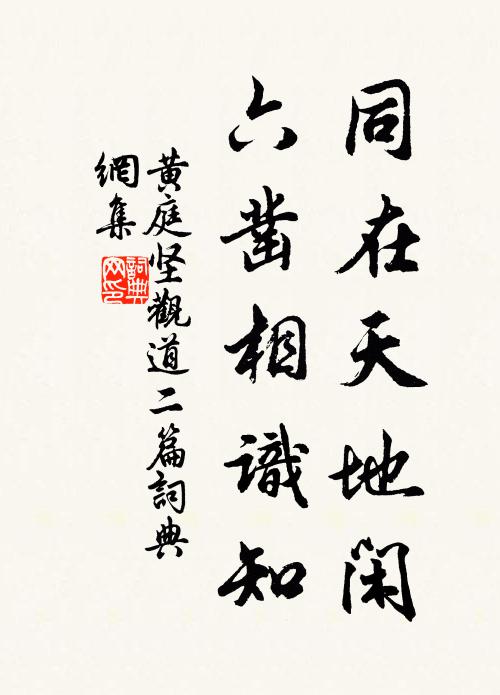 同在天地閑
六凿相識知
黄庭坚觀道二篇詞典
網集
詞典
网印